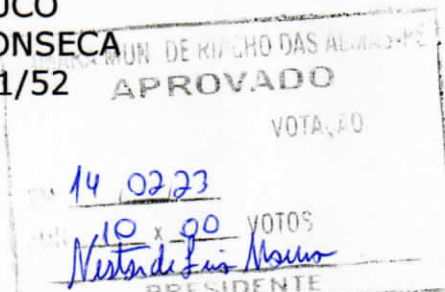 UCO
ONSECA
1/52
MUN. DE RIACHO DAS ALMAS-PE
APROVADO
VOTAÇÃO
14 02 23
10 x 00 VOTOS
PRESIDENTE